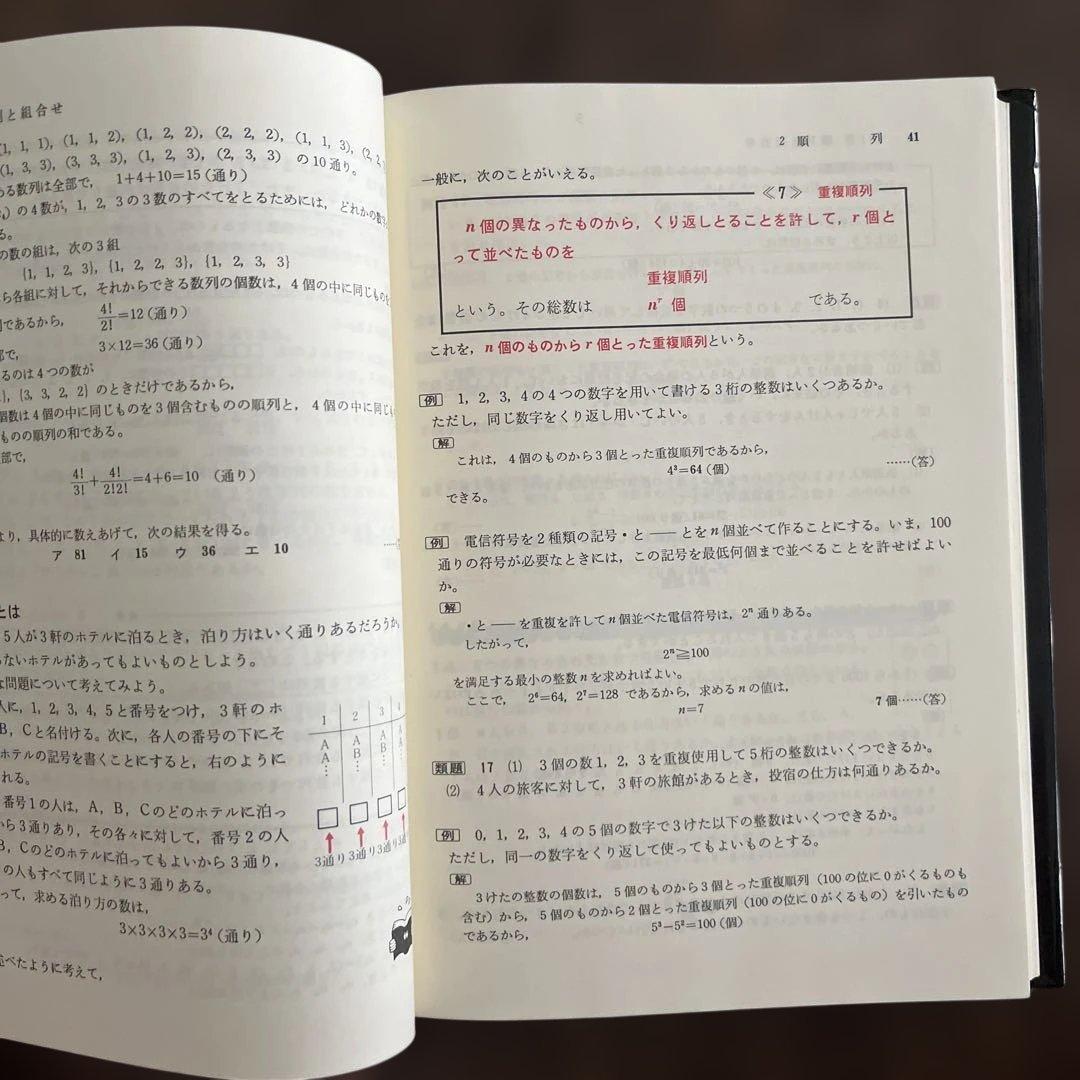 と組合せ
(1, 1, 1), (1, 1, 2), (1, 2, 2), (2, 2, 2), (1, 1, 3), (2, 2
(1, 3, 3), (3, 3, 3), (1, 2, 3), (2, 3, 3) の10通り。
ある数列は全部で, 1+4+10=15(通り)
)の4数が, 1, 2, 3の3数のすべてをとるためには, どれかの数
る。
の数の組は, 次の3組
{1, 1, 2, 3}, {1, 2, 2, 3}, {1, 2, 3, 3}
ら各組に対して, それからできる数列の個数は, 4個の中に同じものを
であるから, 4!/2!=12(通り)
で, 3×12=36(通り)
るのは4つの数が
}, {3, 3, 2, 2}のときだけであるから,
個数は4個の中に同じものを3個含むものの順列と, 4個の中に同じ
ものの順列の和である。
部で,
4!/3!+4!/2!2!=4+6=10 (通り)
より, 具体的に数えあげて, 次の結果を得る。
ア 81 イ 15 ウ 36 エ 10
とは
5人が3軒のホテルに泊るとき, 泊り方はいく通りあるだろうか。
ないホテルがあってもよいものとしよう。
な問題について考えてみよう。
人に, 1, 2, 3, 4, 5と番号をつけ, 3軒のホ
B, Cと名付ける。次に, 各人の番号の下にそ
ホテルの記号を書くことにすると, 右のように
れる。
番号1の人は, A, B, Cのどのホテルに泊っ
ら3通りあり, その各々に対して, 番号2の人
B, Cのどのホテルに泊ってもよいから3通り,
の人もすべて同じように3通りある。
って, 求める泊り方の数は,
3×3×3×3=3⁴(通り)
述べたように考えて,
1 2 3 4
A A A A
A B B
3通り 3通り 3通り 3通り
2 順 列 41
一般に, 次のことがいえる。
≪7≫ 重複順列
n個の異なったものから, くり返しとることを許して, r個と
って並べたものを
重複順列
という。その総数は nʳ 個 である。
これを, n個のものからr個とった重複順列という。
例 1, 2, 3, 4の4つの数字を用いて書ける3桁の整数はいくつあるか。
ただし, 同じ数字をくり返し用いてよい。
解
これは, 4個のものから3個とった重複順列であるから,
4³=64(個) ……(答)
できる。
例 電信符号を2種類の記号・と ── とをn個並べて作ることにする。いま, 100
通りの符号が必要なときには, この記号を最低何個まで並べることを許せばよい
か。
解
・と ── を重複を許してn個並べた電信符号は, 2ⁿ通りある。
したがって,
2ⁿ≧100
を満足する最小の整数nを求めればよい。
ここで, 2⁶=64, 2⁷=128 であるから, 求めるnの値は,
n=7 7個……(答)
類題 17 (1) 3個の数1, 2, 3を重複使用して5桁の整数はいくつできるか。
(2) 4人の旅客に対して, 3軒の旅館があるとき, 投宿の仕方は何通りあるか。
例 0, 1, 2, 3, 4の5個の数字で3けた以下の整数はいくつできるか。
ただし, 同一の数字をくり返して使ってもよいものとする。
解
3けたの整数の個数は, 5個のものから3個とった重複順列(100の位に0がくるものも
含む)から, 5個のものから2個とった重複順列(100の位に0がくるもの)を引いたもの
であるから, 5³−5²=100(個)